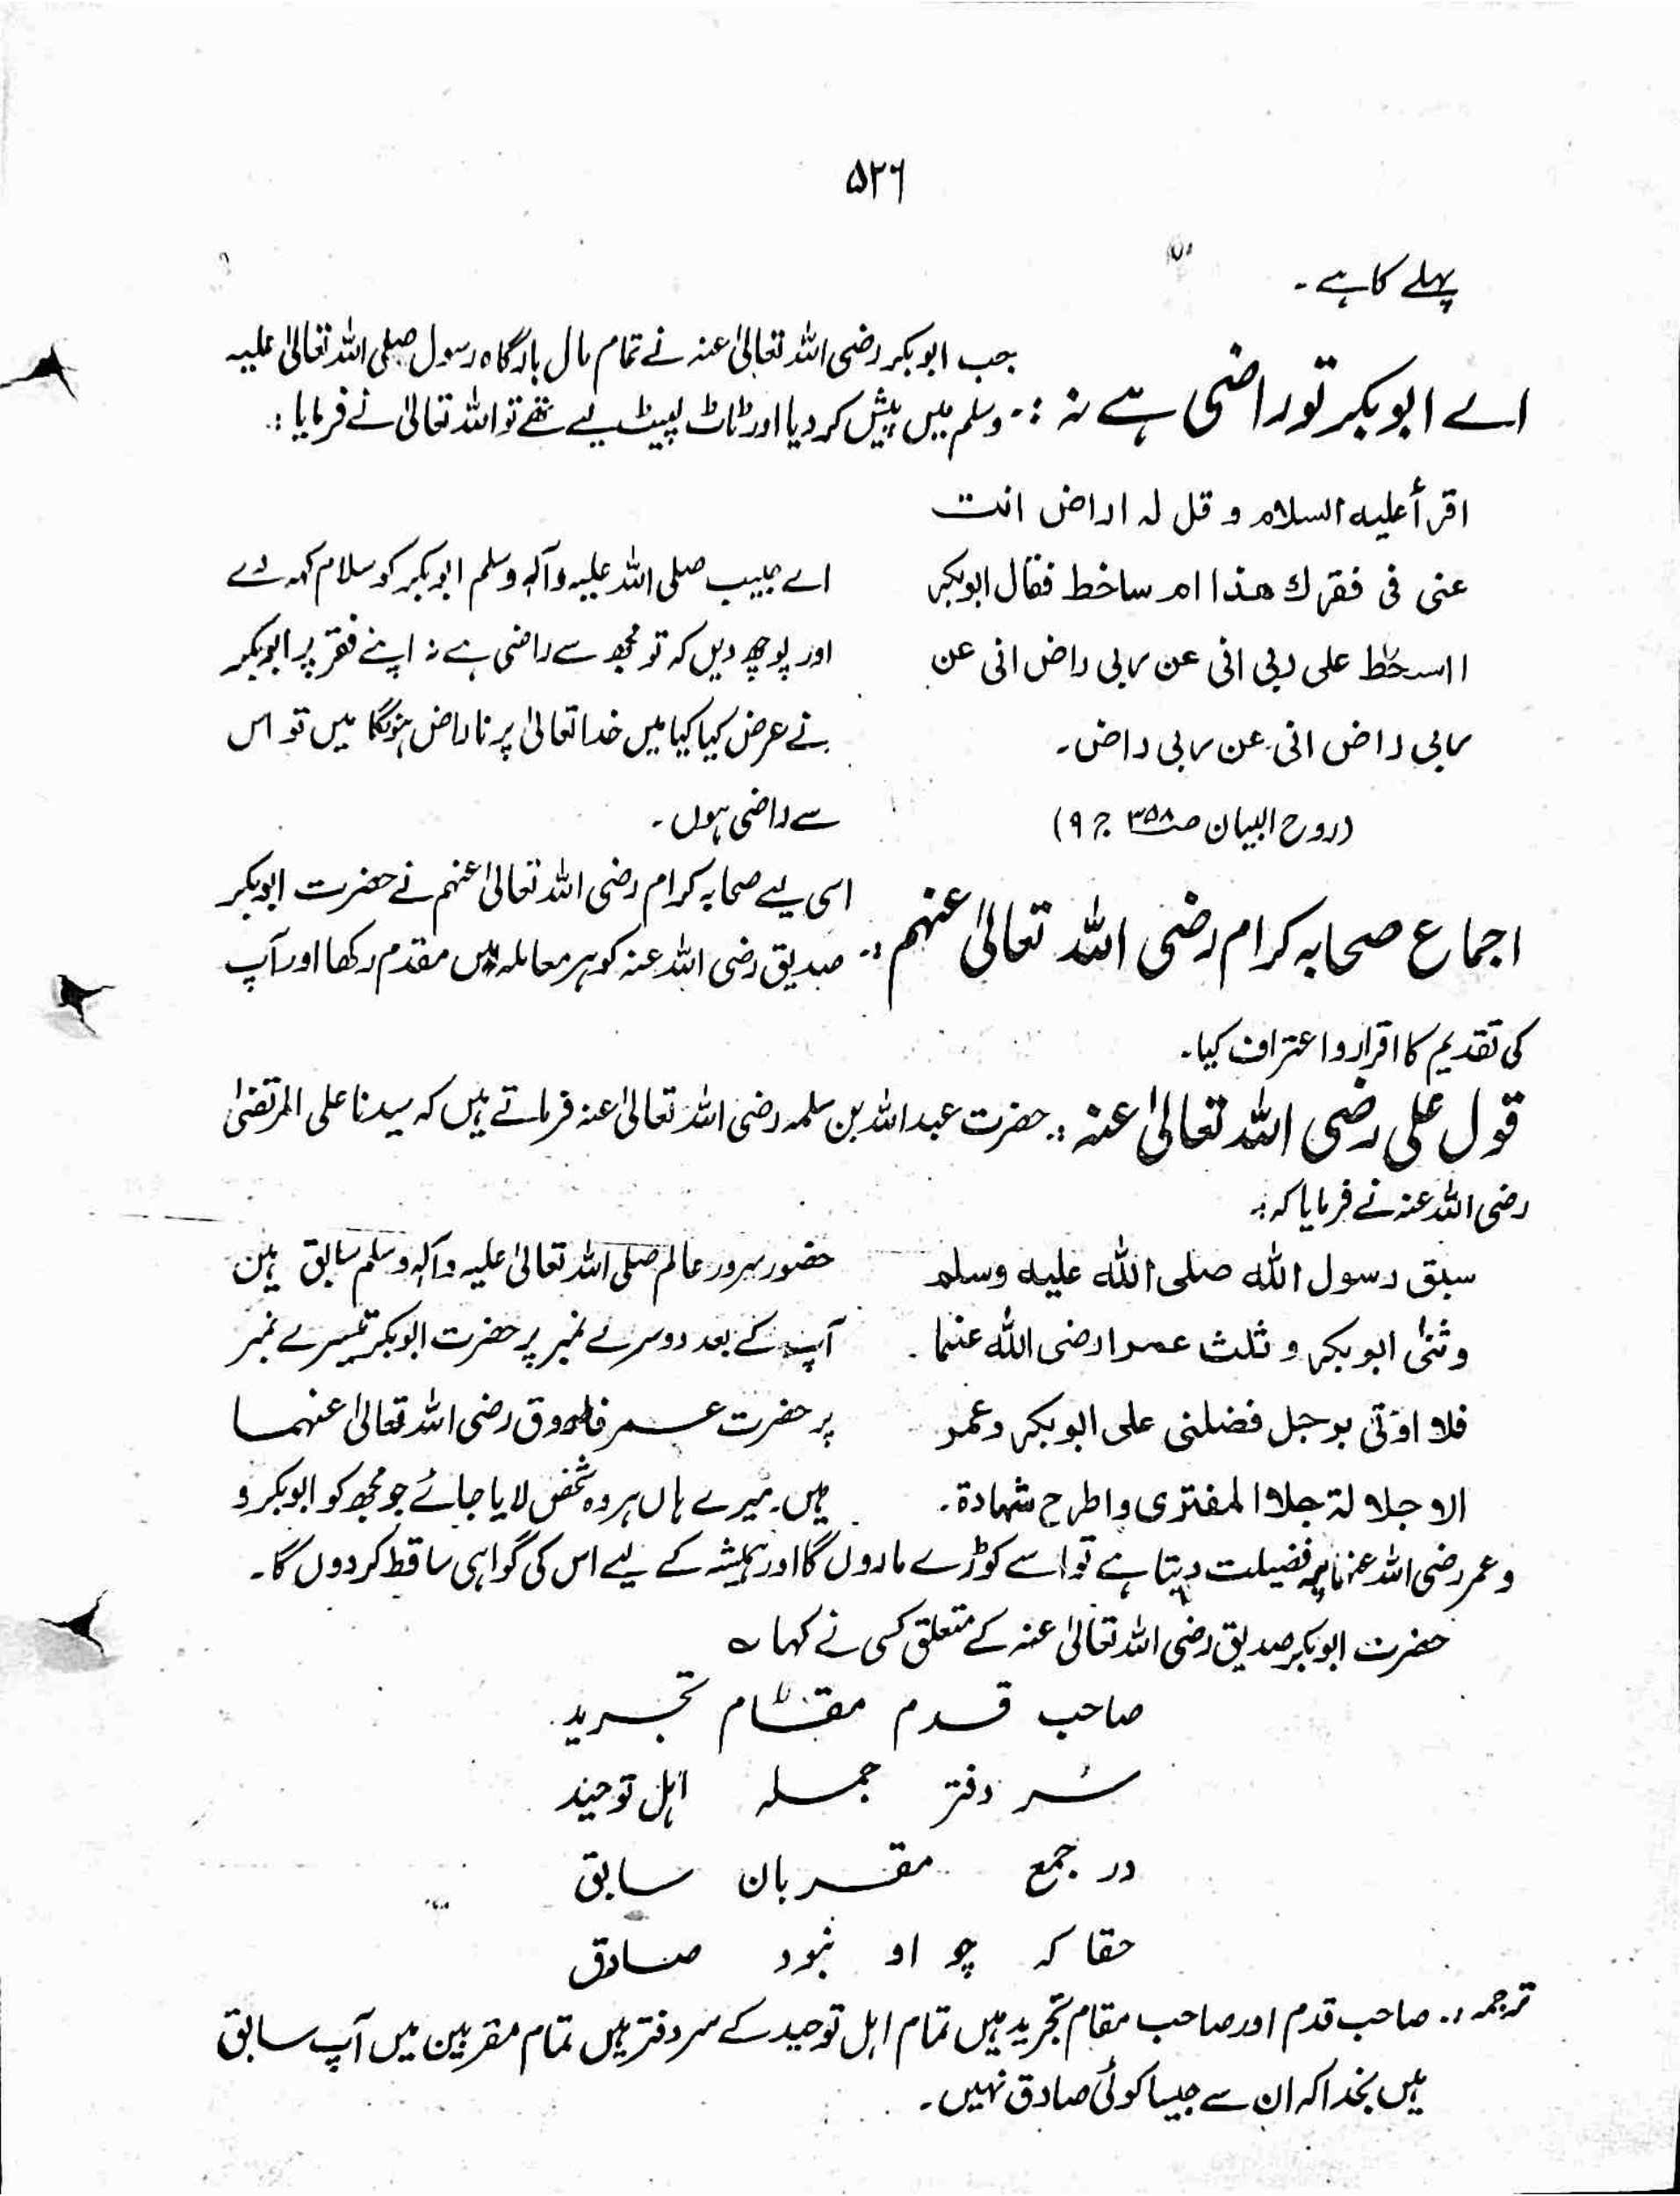 ۵۲۶
پہلے کا ہے ۔
جب ابوبکر رضی اللہ تعالیٰ عنہ نے تمام مال بارگاہ رسول صلی اللہ تعالیٰ علیہ
اے ابوبکر تو راضی ہے نہ :- وسلم میں پیش کر دیا اور ٹاٹ لپیٹ لیے تھے تو اللہ تعالیٰ نے فرمایا :
اقرأ علیہ السلام و قل لہ اراض انت
عنی فی فقرك هذا ام ساخط فقال ابوبکر
ااسخط علی ربی انی عن ربی راض انی عن
ربی راض انی عن ربی راض ۔
(روح البیان صـ ۳۵۸ ج ۹)
اے حبیب صلی اللہ علیہ وآلہ وسلم ابوبکر کو سلام کہہ دے
اور پوچھ دیں کہ تو مجھ سے راضی ہے نہ اپنے فقر پر ابوبکر
نے عرض کیا کیا میں خدا تعالیٰ پر ناراض ہونگا میں تو اس
سے راضی ہوں ۔
اسی لیے صحابہ کرام رضی اللہ تعالیٰ عنہم نے حضرت ابوبکر
اجماع صحابہ کرام رضی اللہ تعالیٰ عنہم :- صدیق رضی اللہ عنہ کو ہر معاملہ میں مقدم رکھا اور آپ
کی تقدیم کا اقرار و اعتراف کیا ۔
قول علی رضی اللہ تعالیٰ عنہ :- حضرت عبداللہ بن سلمہ رضی اللہ تعالیٰ عنہ فرماتے ہیں کہ سیدنا علی المرتضیٰ
رضی اللہ عنہ نے فرمایا کہ :
سبق رسول اللہ صلی اللہ علیہ وسلم
وثنی ابوبکر و ثلث عمر ارضی اللہ عنہما ۔
فلا اوتی برجل فضلنی علی ابوبکر وعمر
الا جلا لتہ جلا المفتری واطرح شهادة ۔
حضور سرور عالم صلی اللہ تعالیٰ علیہ وآلہ وسلم سابق ہیں
آپ کے بعد دوسرے نمبر پر حضرت ابوبکر تیسرے نمبر
پر حضرت عمر فاروق رضی اللہ تعالیٰ عنہما
ہیں ۔ میرے ہاں ہر وہ شخص لایا جائے جو مجھ کو ابوبکر و
وعمر رضی اللہ عنہما پر فضیلت دیتا ہے تو اسے کوڑے ماروں گا اور ہمیشہ کے لیے اس کی گواہی ساقط کر دوں گا ۔
حضرت ابوبکر صدیق رضی اللہ تعالیٰ عنہ کے متعلق کسی نے کہا ؎
صاحب قدم مقام تجرید
سر دفتر جملہ اہل توحید
در جمع مقربان سابق
حقا کہ چو او نبود صادق
ترجمہ :- صاحب قدم اور صاحب مقام تجرید ہیں تمام اہل توحید کے سر دفتر ہیں تمام مقربین میں آپ سابق
ہیں بخدا کہ ان سے جیسا کوئی صادق نہیں ۔